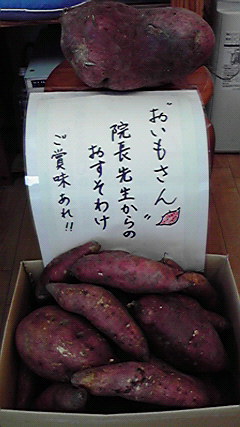 おいもさん
院長先生からの
おすそわけ
ご賞味あれ!!